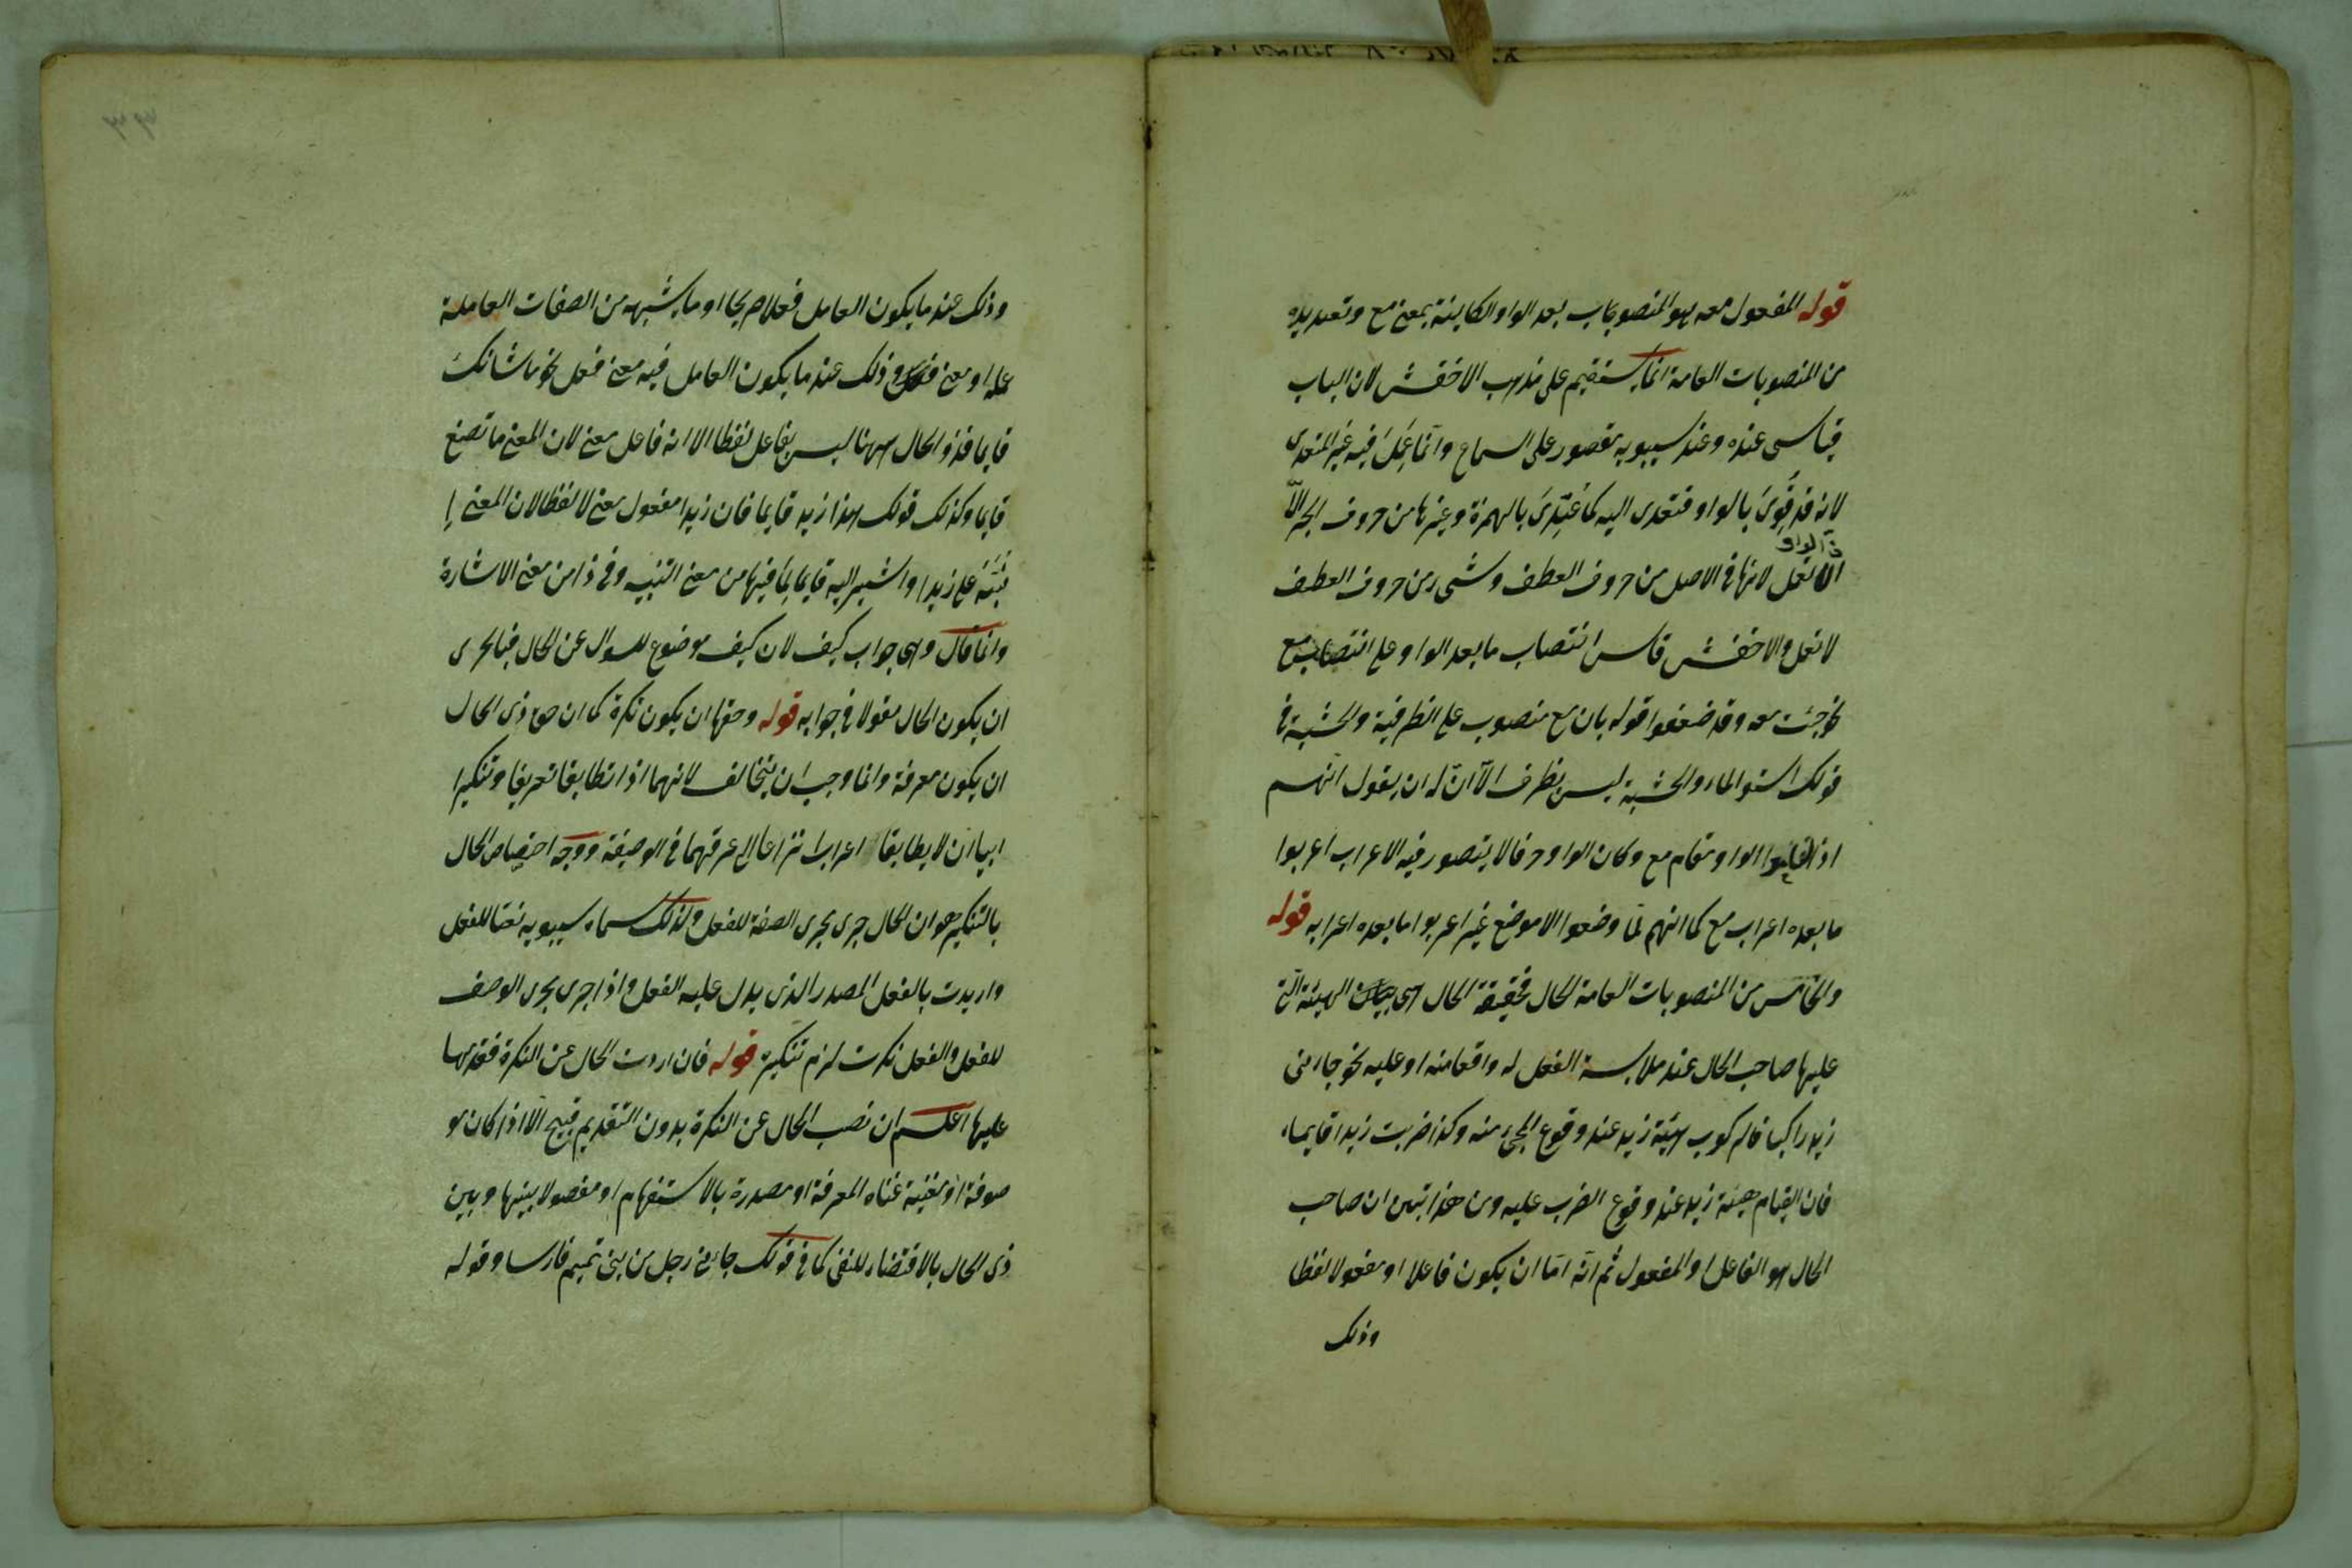 قوله المفعول معه هو المنصوب بعد الواو الكاينة بمعنى مع وتعديده
من المنصوبات العامة انما يستقيم على مذهب الاخفش لان الباب
قياسى عنده وعند سيبويه مقصور على السماع وانّما عَمِلَ فيه غير المتعدى
لانه قد قُوِّىَ بالواو فتعدى اليه كما عُدِّىَ بالهمزة وغيرها من حروف الجر الّا
انّ الواو
لا تعمل لانها فى الاصل من حروف العطف وشىء من حروف العطف
لا تعمل والاخفش قاس انتصاب ما بعد الواو على انتصاب مع
نحو جئت معه وقد ضعفوا قوله بان مع منصوب على الظرفية والخشبة فى
قولك استوى الماء والخشبة ليس بظرف الّا انّ له ان يقول انّهم
اذا اقاموا الواو مقام مع وكان الواو حرفا لا يتصور فيه الاعراب اعربوا
ما بعده اعراب مع كما انهم لمّا وضعوا الا موضع غير اعربوا ما بعده اعرابه قوله
والخامس من المنصوبات العامة الحال فحقيقة الحال هى بيان الهيئة الّتى
عليها صاحب الحال عند ملابسة الفعل له واقعا منه او عليه نحو جاءنى
زيد راكبا فالركوب هيئة زيد عند وقوع المجىء منه وكذا ضربت زيدا قايما
فان القيام هيئة زيد عند وقوع الضرب عليه ومن هذا تبين ان صاحب
الحال هو الفاعل او المفعول ثم انّه امّا ان يكون فاعلا او مفعولا لفظا
وذلك
وذلك عند ما يكون العامل فعلا صريحا او ما يشبهه من الصفات العاملة
عمله او معنى وذلك عند ما يكون العامل فيه معنى فعل نحو ما شانك
قايما فذو الحال ههنا ليس بفاعل لفظا الا انه فاعل معنى لان المعنى ما تصنع
قايما وكذلك قولك هذا زيد قايما فان زيدا مفعول معنى لا لفظا لان المعنى
نبّه على زيد او اشير اليه قايما لما فيها من معنى التنبيه وفى ذا من معنى الاشارة
وانما قال وهى جواب كيف لان كيف موضوع للسوال عن الحال فبالحرى
ان يكون الحال مقولا فى جوابه قوله وحقها ان يكون نكرة كما ان حق ذى الحال
ان يكون معرفة وانما وجب ان يتخالف لانهما اذا تطابقا تعريفا وتنكيرا
ابيا ان لا يطابقا اعرابا نزاعا الى عرقهما فى الوصيفة ووجه اختصاص الحال
بالتنكير هو ان الحال جرى مجرى الصفة للفعل ولذلك سماه سيبويه نعتا للفعل
واريدت بالفعل المصدر الذى يدل عليه الفعل واذا جرى مجرى الوصف
للفعل والفعل نكرت لزم تنكيره قوله فان اردت الحال عن النكرة فقدمها
عليها اعلم ان نصب الحال عن النكرة بدون التقديم قبيح الّا اذا كان مو
صوفة او مغنية غناء المعرفة او مصدرة بالاستفهام او مفصولا بينها وبين
ذى الحال بالاقتضاء للنفى كما فى قولك جاءنى رجل من بنى تميم فارسا وقوله